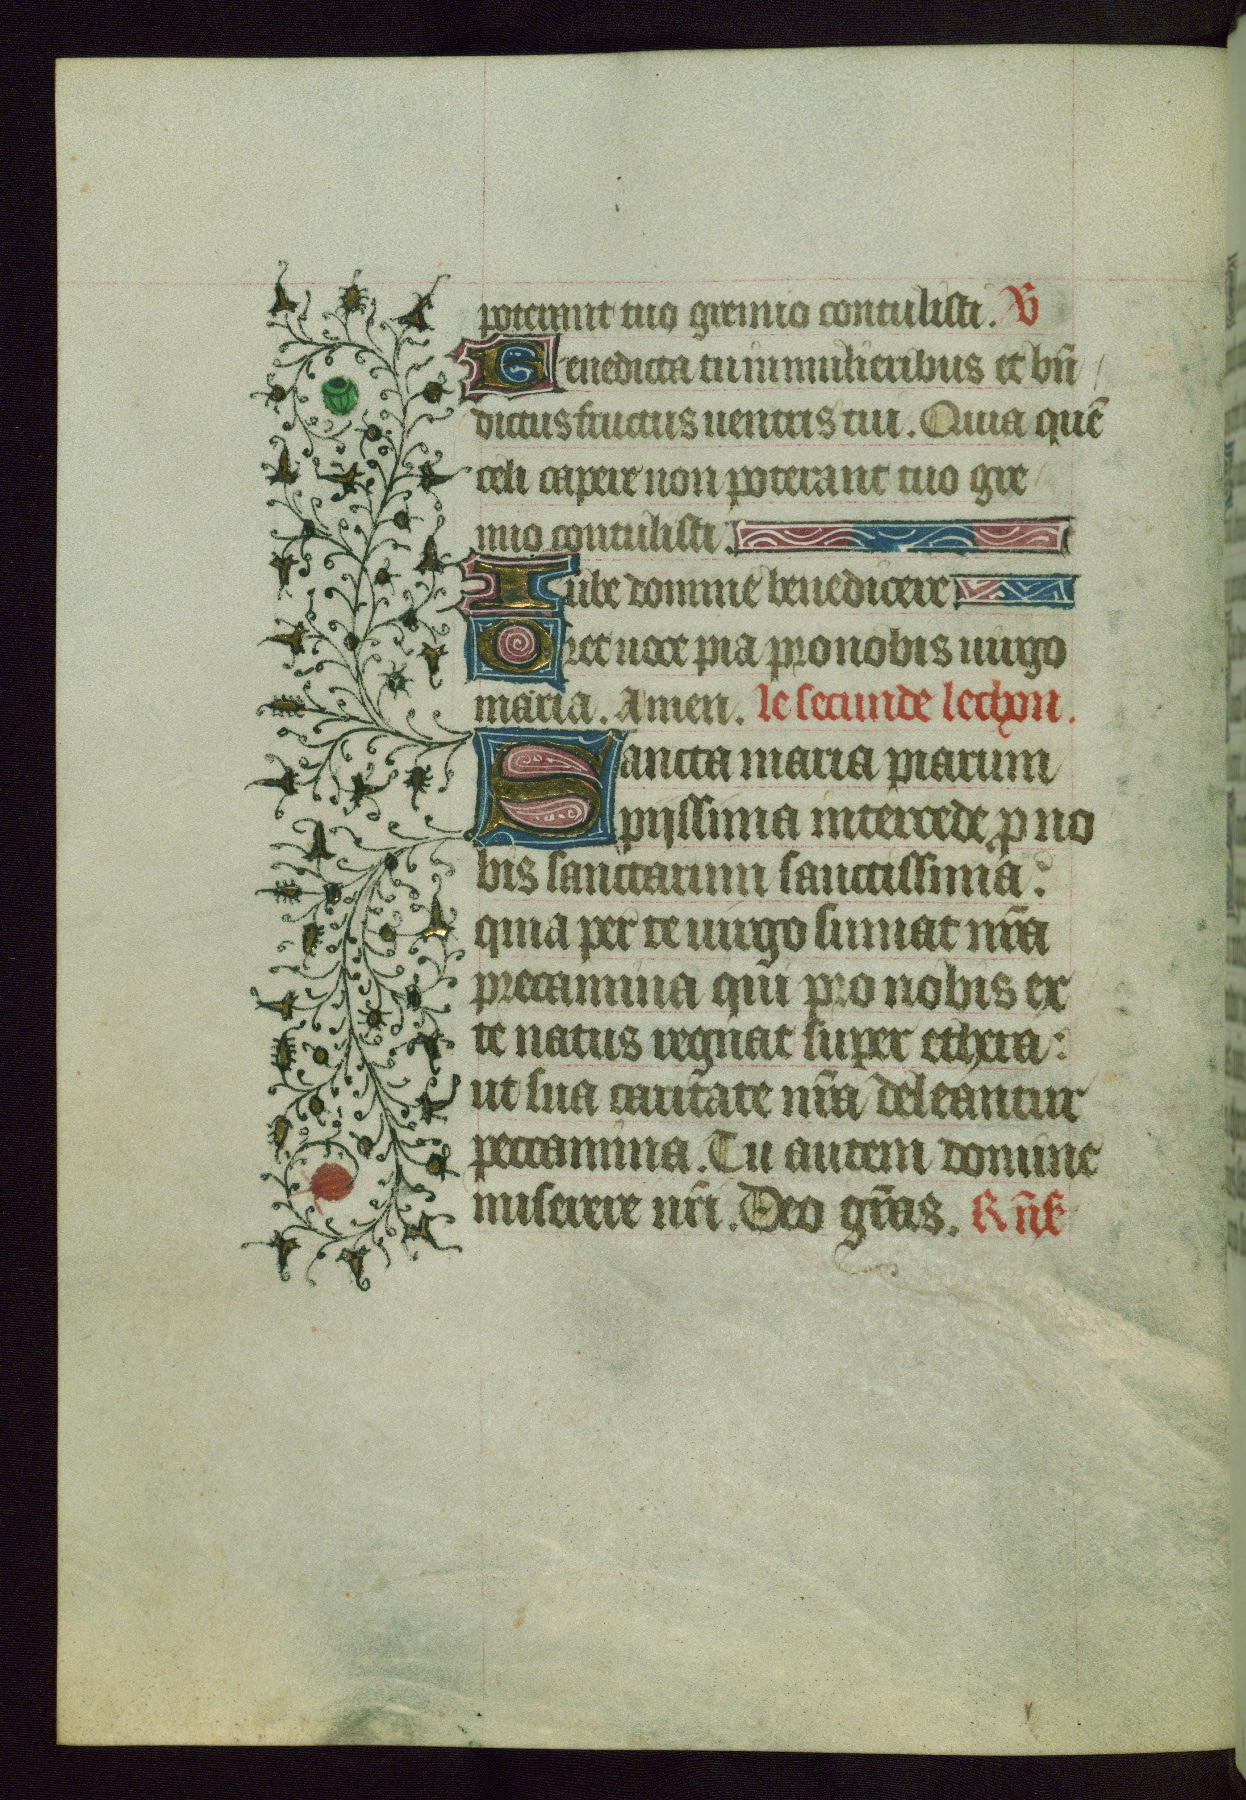 poterant tuo gremio contulisti. V
Benedicta tu in mulieribus et bn̄
dictus fructus uentris tui. Quia quē
celi capere non poterant tuo gre
mio contulisti.
Iube domine benedicere
Oret uoce pia pro nobis uirgo
maria. Amen. le secunde lechon.
Sancta maria piarum
piissima intercede p̲ no
bis sanctarum sanctissima:
quia per te uirgo sumat nr̄a
precamina qui pro nobis ex
te natus regnat super ethera:
ut sua caritate nr̄a deleantur
peccamina. Tu autem domine
miserere nr̄i. Deo gr̄as.